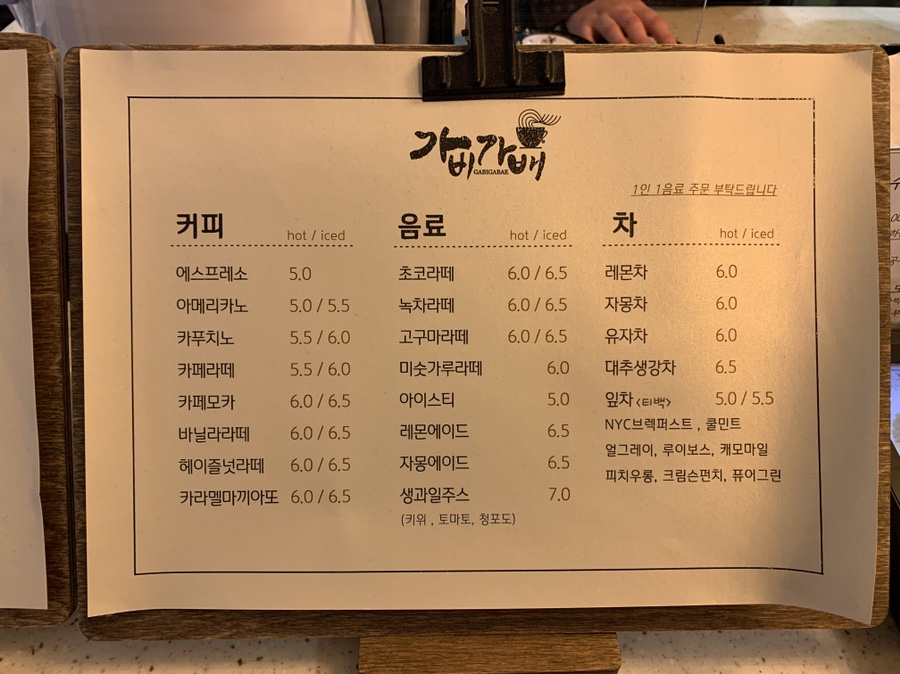 가비가배
GABIGABAE
1인 1음료 주문 부탁드립니다
커피 hot / iced
에스프레소 5.0
아메리카노 5.0 / 5.5
카푸치노 5.5 / 6.0
카페라떼 5.5 / 6.0
카페모카 6.0 / 6.5
바닐라라떼 6.0 / 6.5
헤이즐넛라떼 6.0 / 6.5
카라멜마끼아또 6.0 / 6.5
음료 hot / iced
초코라떼 6.0 / 6.5
녹차라떼 6.0 / 6.5
고구마라떼 6.0 / 6.5
미숫가루라떼 6.0
아이스티 5.0
레몬에이드 6.5
자몽에이드 6.5
생과일주스 7.0
(키위 , 토마토, 청포도)
차 hot / iced
레몬차 6.0
자몽차 6.0
유자차 6.0
대추생강차 6.5
잎차 <티백> 5.0 / 5.5
NYC브렉퍼스트 , 쿨민트
얼그레이, 루이보스, 캐모마일
피치우롱, 크림슨펀치, 퓨어그린